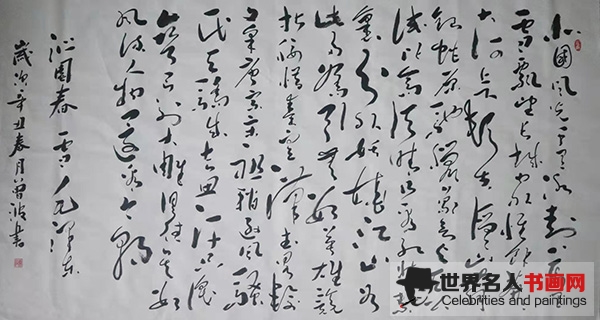 北國風光千里冰封万里
雪飘望长城内外惟馀莽莽
大河上下顿失滔滔山舞
银蛇原驰蜡象欲与天公
试比高须晴日看红装素
裹分外妖娆江山如
此多娇引无数英雄竞
折腰惜秦皇汉武略输文
采唐宗宋祖稍逊风骚一
代天骄成吉思汗只识
弯弓射大雕俱往矣数
风流人物还看今朝
沁园春 雪 毛泽东
岁次辛丑春月曾波书
世界名人书画网
Celebrities and paintings